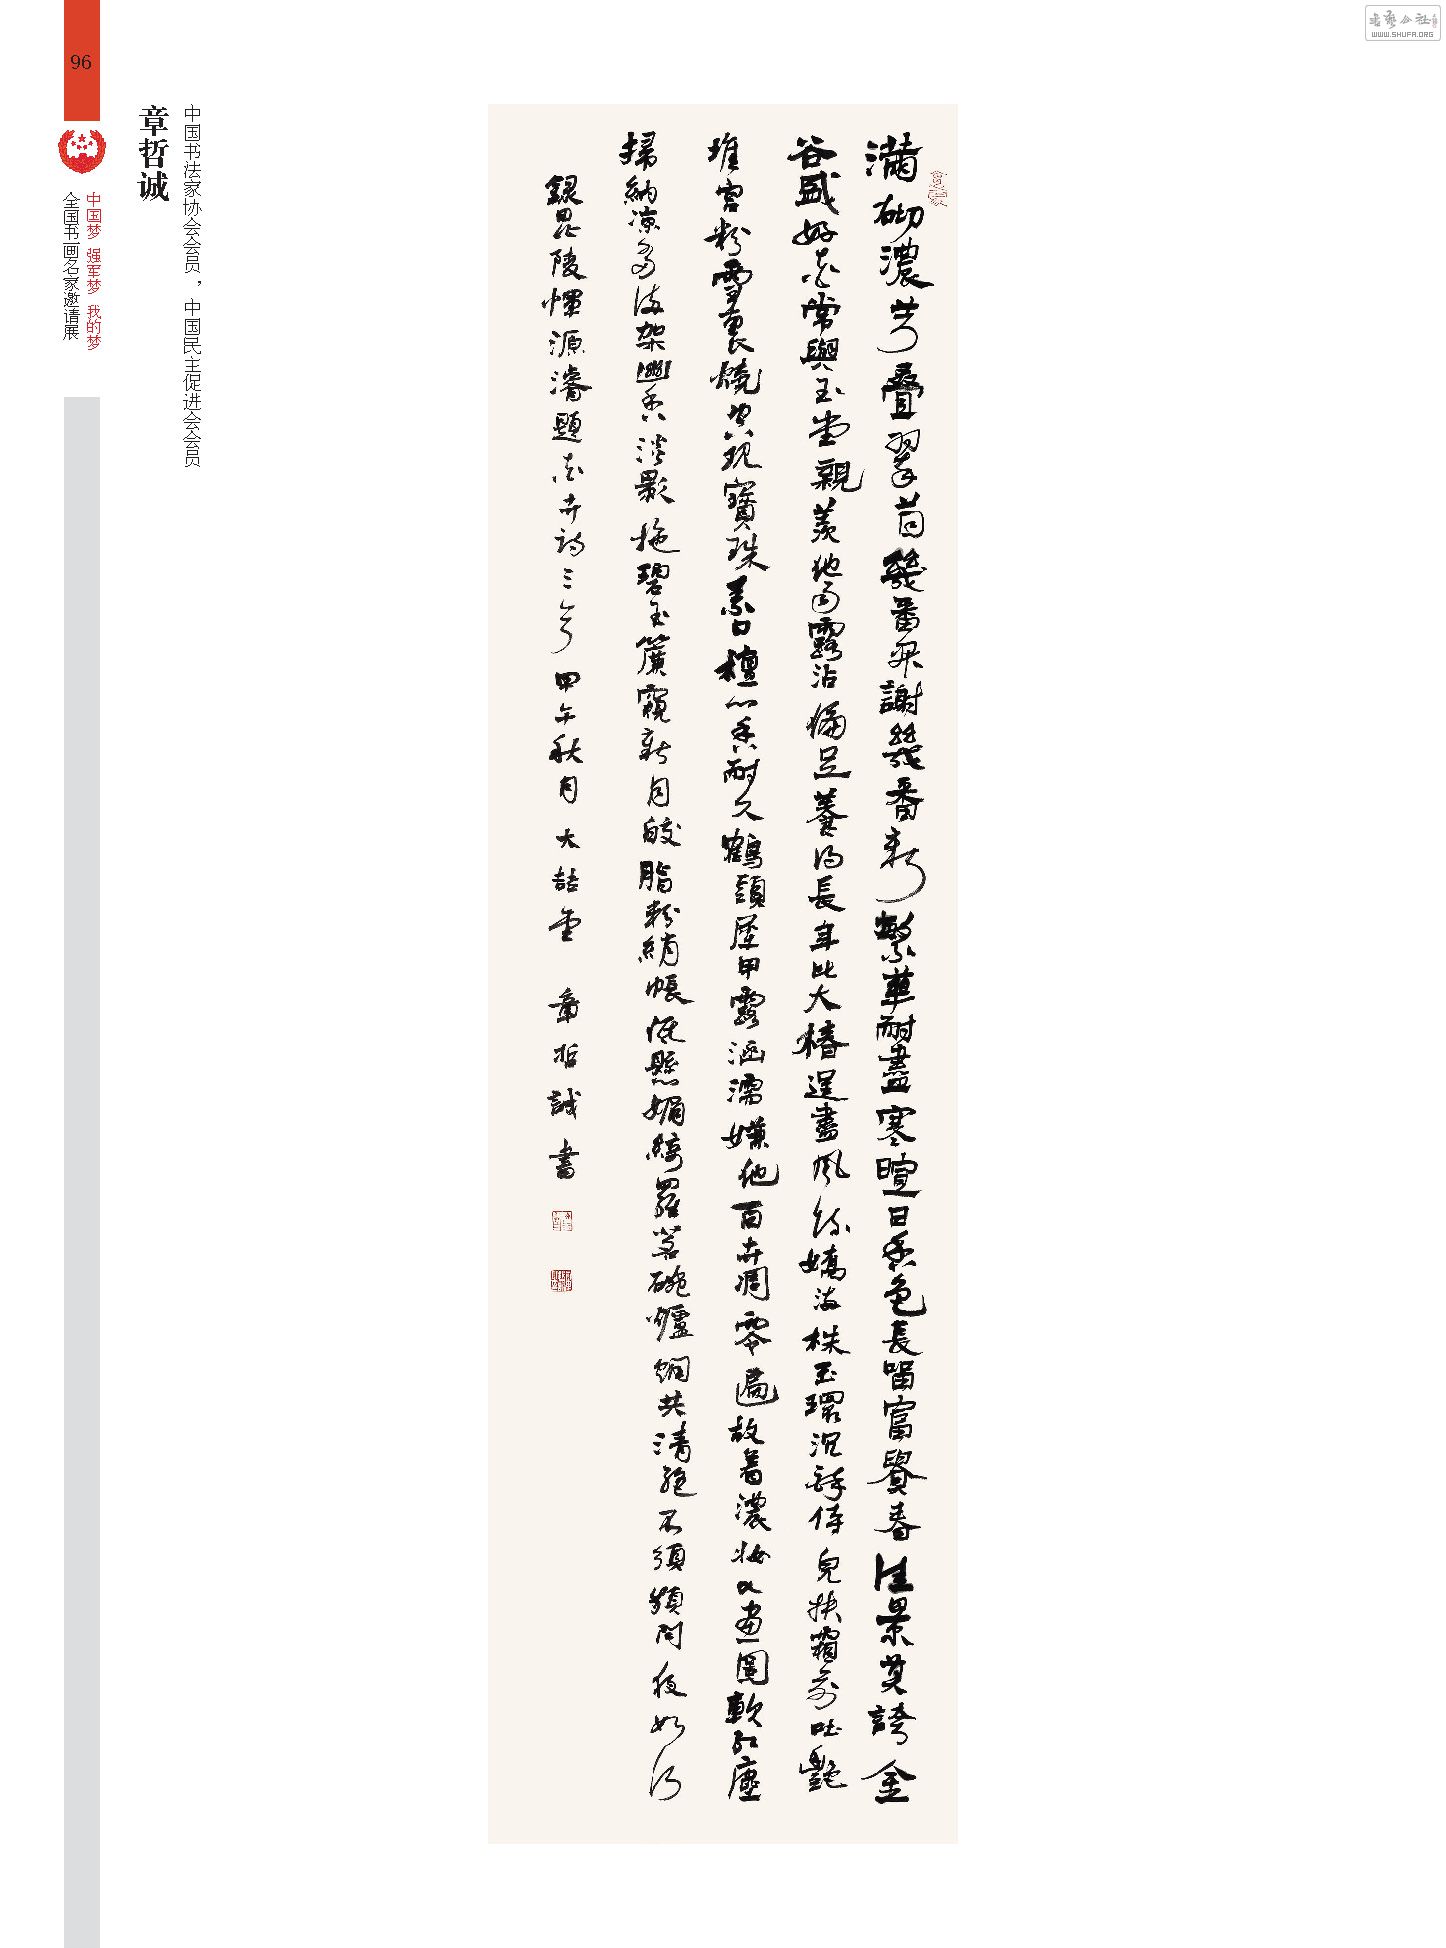 96
中国梦 强军梦 我的梦
全国书画名家邀请展
章哲诚
中国书法家协会会员，中国民主促进会会员
书艺公社
WWW.SHUFA.ORG
滿砌濃芳疊翠茵幾番開謝幾番新繁華耐盡寒暄日香色長留富貴春佳景莫誇金
谷盛好花常與玉堂親羨他雨露沾偏足養得長年比大椿逞盡風流嬌海棠玉環沉醉侍兒扶霜前吐艷
堆宮粉雪裏燒空現寶珠素口檀心香耐久鶴頭屋甲露涵濡嫌他百卉凋零遍故著濃妝入畫圖軟紅塵
掃納凉多滿架幽香淡影拖碧玉簾窺新月皎脂粉綃帳低懸媚綺羅茗碗爐烟共清絕不須頻問夜如何
錄毘陵惲源濬題花卉詩三首 甲午秋月 大喆堂 章哲誠書